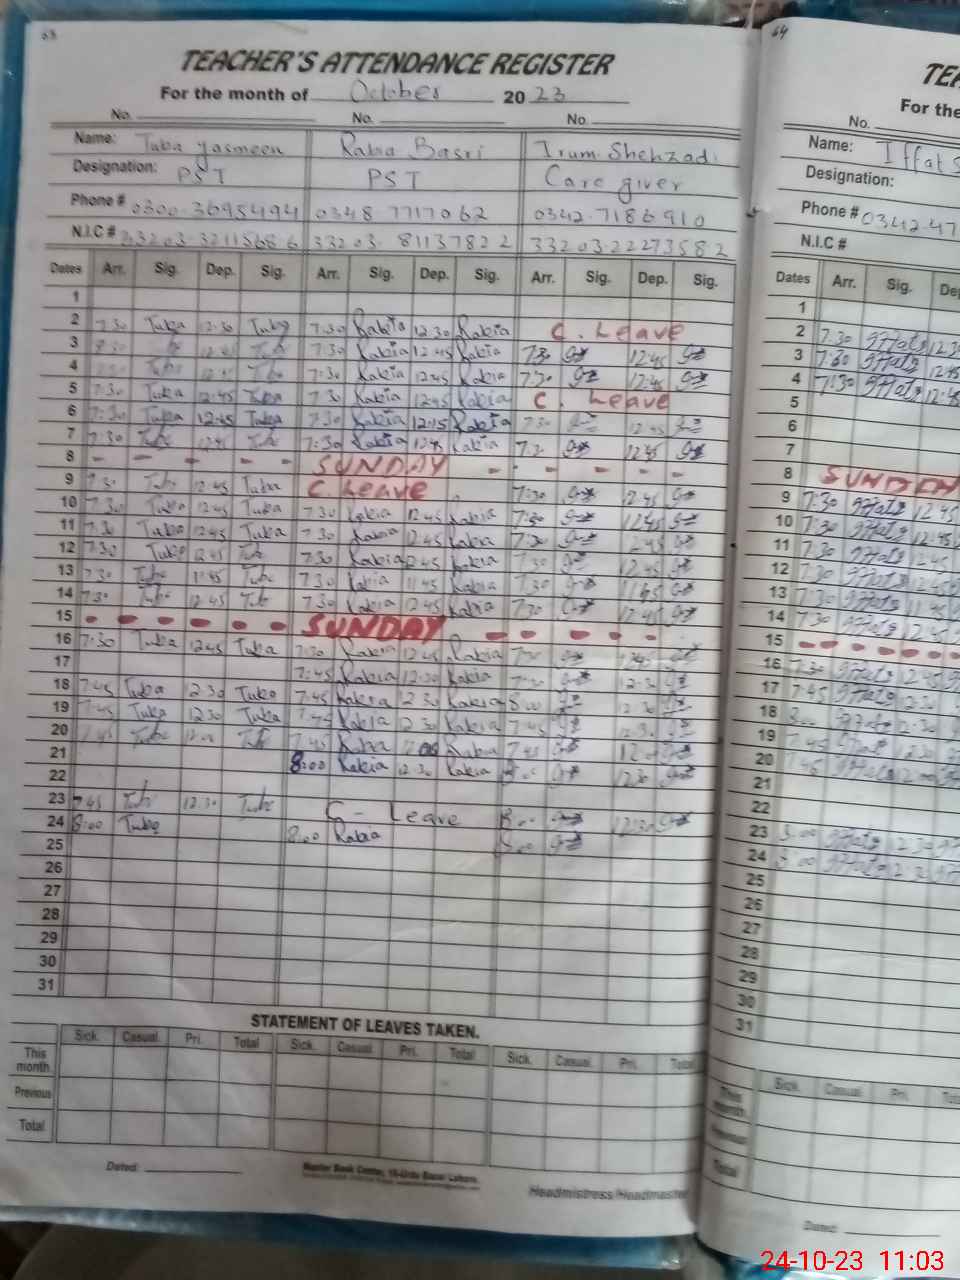 63
TEACHER'S ATTENDANCE REGISTER
For the month of October 2023
No. No. No.
Name: Tuba yasmeen Rabia Basri Irum Shehzadi
Designation: PST PST Care giver
Phone # 0300-3695494 0348 7717062 0342-7186910
N.I.C # 33203 33203-22273582
Dates Arr. Sig. Dep. Sig. Arr. Sig. Dep. Sig. Arr. Sig. Dep. Sig.
1
2 7:30 Tuba 12:30 Tuba 7:30 Rabia 12:30 Rabia C. Leave
3 Tuba 12:45 Tuba 7:30 Rabia 12:45 Rabia 7:30 12:45
4 Tuba Tuba 7:30 Rabia 12:45 Rabia 7:30 12:45
5 7:30 Tuba 12:45 Tuba 7:30 Rabia 12:45 Rabia C. Leave
6 7:30 Tuba 12:45 Tuba 7:30 Rabia Rabia 7:30 12:45
7 7:30 Tuba 12:45 Tuba 7:30 Rabia 12:45 Rabia 12:45
8 SUNDAY
9 7:30 Tuba 12:45 Tuba C. Leave 7:30 12:45
10 7:30 Tuba 12:45 Tuba 7:30 Rabia 12:45 Rabia 7:30 12:45
11 7:30 Tuba 12:45 Tuba 7:30 Rabia 12:45 Rabia 7:30
12 7:30 Tuba 12:45 Tuba 7:30 Rabia 12:45 Rabia 7:30 12:45
13 7:30 Tuba 11:45 Tuba 7:30 Rabia 11:45 Rabia 7:30
14 7:30 Tuba 12:45 Tuba 7:30 Rabia 12:45 Rabia 7:30 12:45
15 SUNDAY
16 7:30 Tuba 12:45 Tuba 7:30 Rabia 12:45 Rabia
17 7:45 Rabia 12:30 Rabia 12:30
18 7:45 Tuba 12:30 Tuba 7:45 Rabia 12:30 Rabia 8:00 12:30
19 7:45 Tuba 12:30 Tuba 7:45 Rabia 12:30 Rabia 7:45 12:30
20 7:45 Tuba Tuba 7:45 Rabia Rabia 7:45
21 8:00 Rabia 12:30 Rabia 12:30
22
23 7:45 Tuba 12:30 Tuba C- Leave 8:00 12:30
24 8:00 Tuba 8:00 Rabia 8:00
25
26
27
28
29
30
31
STATEMENT OF LEAVES TAKEN.
Sick. Casual. Pri. Total Sick. Casual. Pri. Total Sick. Casual. Pri. Total
This month.
Previous
Total
Dated:
Master Book Center, 16-Urdu Bazar Lahore.
Headmistress/Headmaster
64
TEA
For the
No.
Name: Iffat S
Designation:
Phone # 0342-47
N.I.C #
Dates Arr. Sig. De
1
2 7:30 Iffat 12:3
3 7:30 Iffat 12:45
4 7:30 Iffat 12:4
5
6
7
8 SUNDAY
9 7:30 Iffat 12:45
10 7:30 Iffat 12:45
11 7:30 Iffat 12:45
12 7:30 Iffat 12:45
13 7:30 Iffat 11:45
14 7:30 Iffat 12:45
15
16 7:30 Iffat 12:45
17 7:45 Iffat 12:30
18 8:00 Iffat 12:30
19 7:45 Iffat 12:30
20 7:45 Iffat
21
22
23 8:00 Iffat 12:30
24 8:00 Iffat 12:30
25
26
27
28
29
30
31
Sick. Casual. Pri. Tota
This month.
Previous
Total
Dated:
24-10-23 11:03